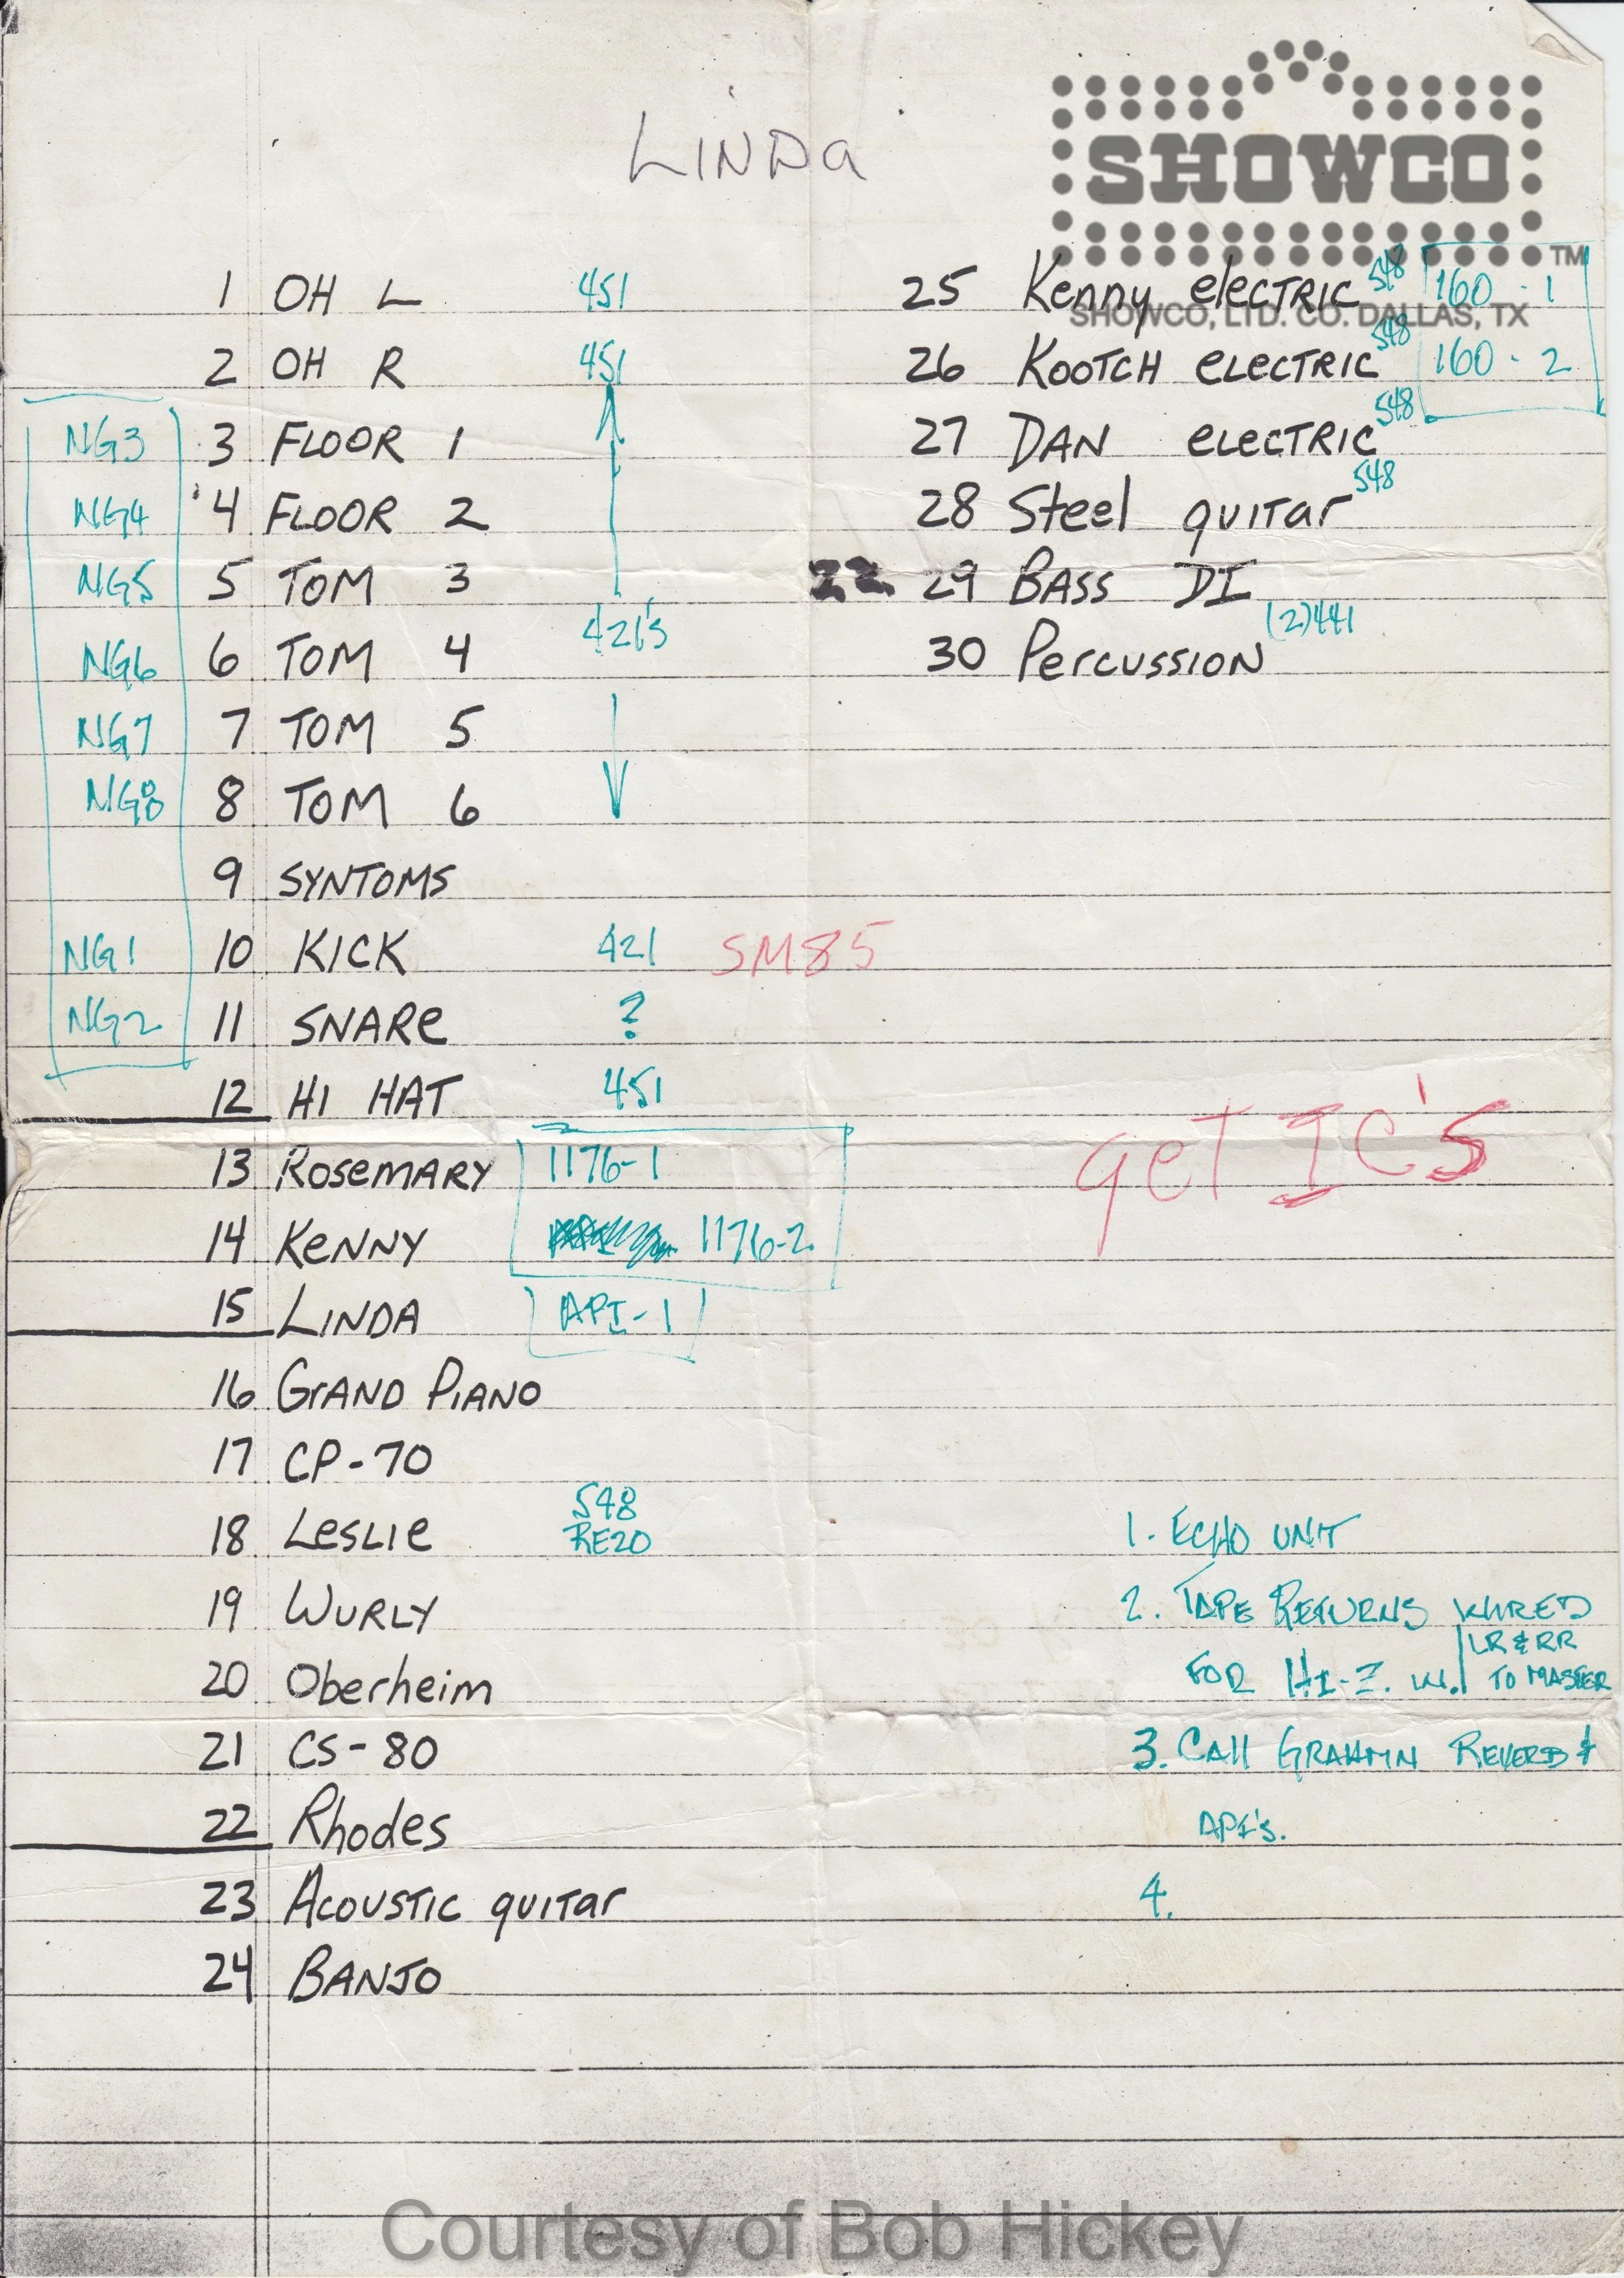 LINDa
SHOWCO
TM
SHOWCO, LTD. CO. DALLAS, TX
1 OH L 451
2 OH R 451
NG3 3 FLOOR 1
NG4 4 FLOOR 2
NG5 5 TOM 3
421's
NG6 6 TOM 4
NG7 7 TOM 5
NG8 8 TOM 6
9 SYNTOMS
NG1 10 KICK 421 SM85
NG2 11 SNARe ?
12 HI HAT 451
13 RoseMARY 1176-1
14 KeNNY 1176-2.
15 LINDA API-1
16 GrAND PIANO
17 CP-70
548
18 LesLIe RE20
19 WURLY
20 Oberheim
21 CS-80
22 Rhodes
23 AcousTIc guITar
24 BANJO
25 Kenny elecTRIC 548 160-1
26 KOOTCH elecTRIC 548 160-2
27 DAN elecTRIC 548
28 Steel guITar 548
22 29 BASS DI
30 PercussIoN (2)441
geT IC's
1. ECHO UNIT
2. TAPE RETURNS WIRED
FOR HI-Z. IN. LR & RR TO MASTER
3. CAll GRAHMN REVERB &
API's.
4.
Courtesy of Bob Hickey